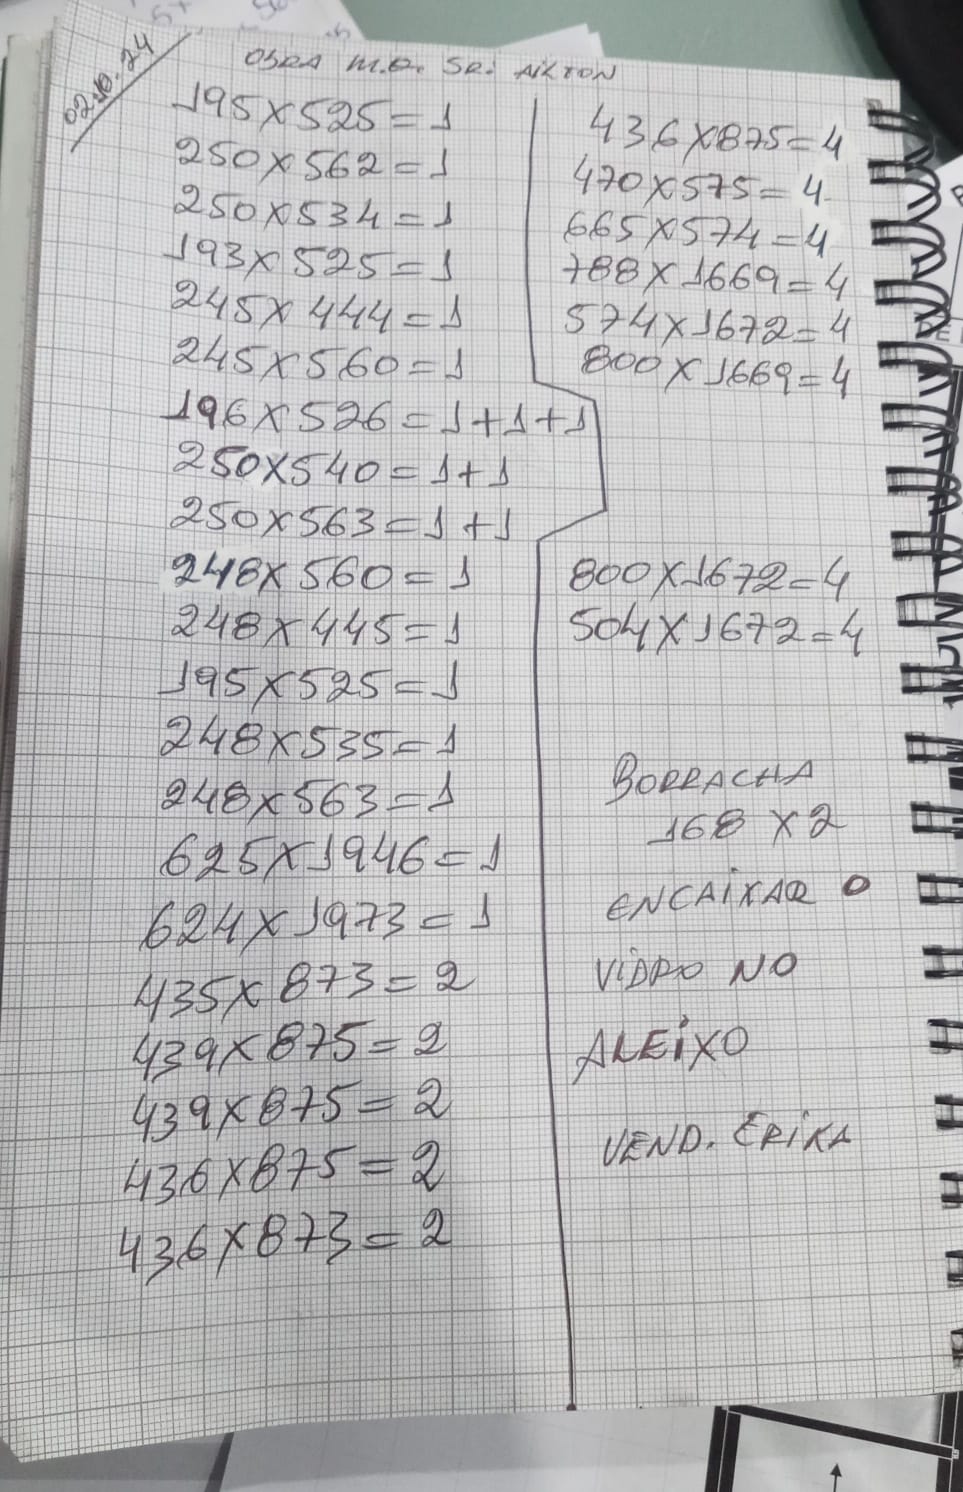 02.10.24
OBRA M.O. SR: AILTON
195X525=1
250X562=1
250X534=1
193X525=1
245X444=1
245X560=1
196X526=1+1+1
250X540=1+1
250X563=1+1
248X560=1
248X445=1
195X525=1
248X535=1
248X563=1
625X1946=1
624X1973=1
435X873=2
439X875=2
439X875=2
436X875=2
436X873=2
436X875=4
470X575=4
665X574=4
788X1669=4
574X1672=4
800X1669=4
800X1672=4
504X1672=4
BORRACHA
168 X 2
ENCAIXAR O
VIDRO NO
ALEIXO
VEND. ERIKA